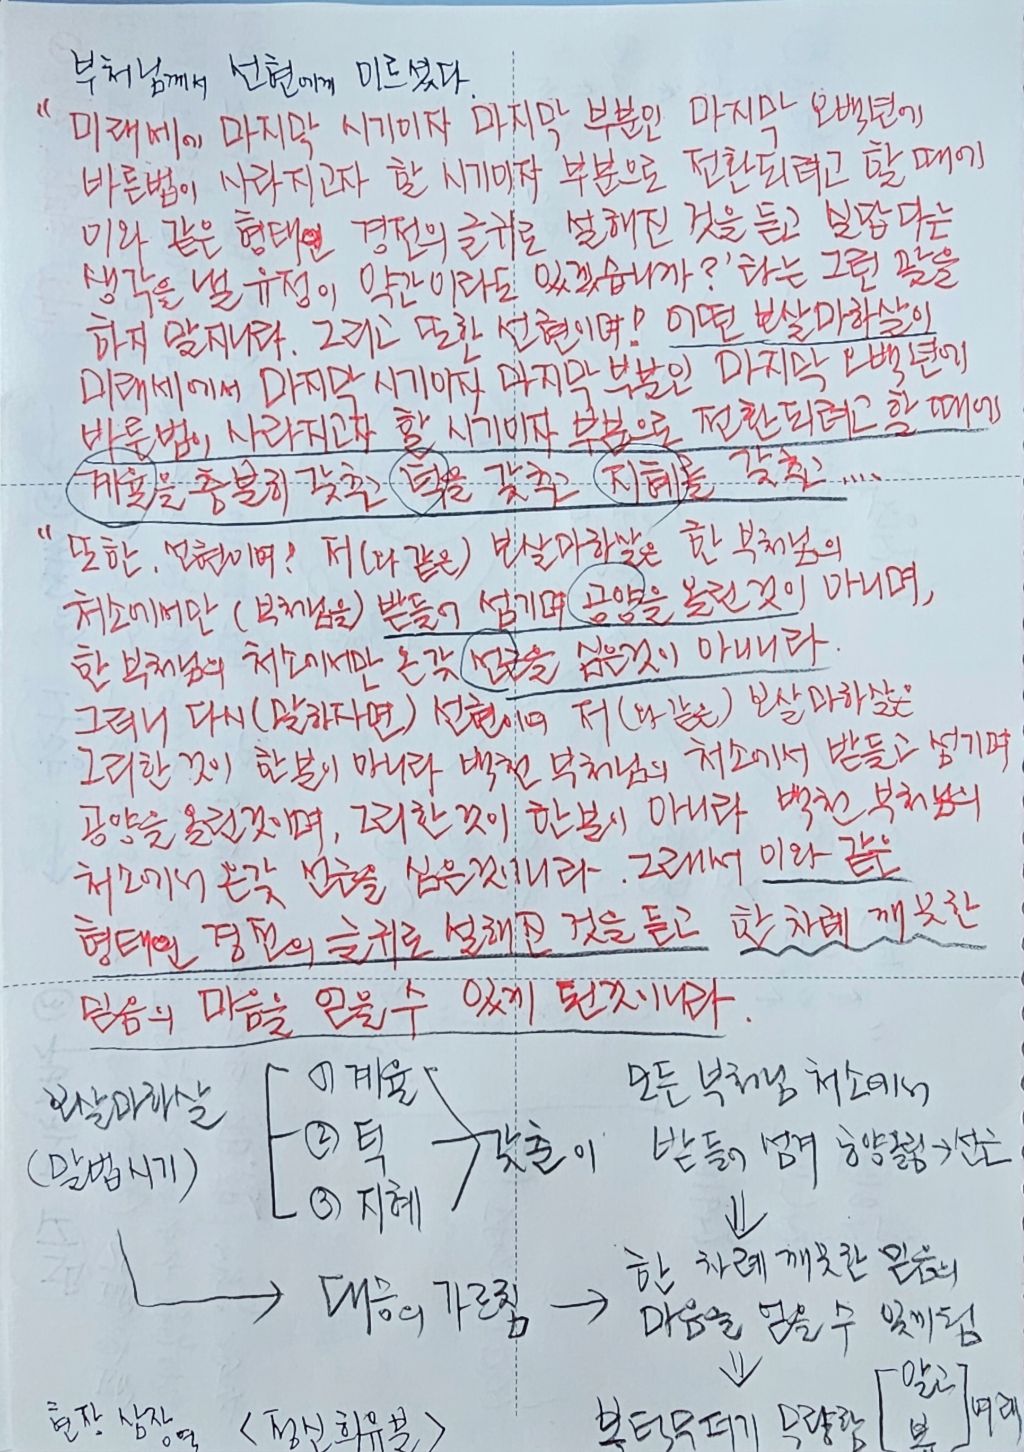 부처님께서 선현에게 이르셨다.
"미래세에 마지막 시기이자 마지막 부분인 마지막 오백년에
바른법이 사라지고자 할 시기이자 부분으로 전환되려고 할 때에
이와 같은 형태인 경전의 글귀로 설해진 것을 듣고 믿잡다는
생각을 낼 유정이 약간이라도 있겠습니까?'라는 그런 말을
하지 말지니라. 그리고 또한 선현이며! 어떤 보살마하살이
미래세에서 마지막 시기이자 마지막 부분인 마지막 오백년에
바른법이 사라지고자 할 시기이자 부분으로 전환되려고 할 때에
계율을 충분히 갖추고 덕을 갖추고 지혜를 갖추고 ....
"또한, 선현이여! 저(와 같은) 보살마하살은 한 부처님의
처소에서만 (부처님을) 받들어 섬기며 공양을 올린것이 아니며,
한 부처님의 처소에서만 온갖 선근을 심은것이 아니니라.
그러니 다시(말하자면) 선현이여 저(와 같은) 보살마하살은
그러한 것이 한분이 아니라 백천 부처님의 처소에서 받들고 섬기며
공양을 올린것이며, 그러한 것이 한분이 아니라 백천 부처님의
처소에서 온갖 선근을 심은것이니라. 그래서 이와 같은
형태인 경전의 글귀로 설해진 것을 듣고 한 차례 깨끗한
믿음의 마음을 얻을 수 있게 된것이니라.
보살마하살
(말법시기)
① 계율
② 덕
③ 지혜
갖춘이
모든 부처님 처소에서
받들어 섬겨 공양올림→선근
⇓
→ 대승의 가르침 →
한 차례 깨끗한 믿음의
마음을 얻을 수 있게됨
⇓
복덕무더기 무량함
[알고
본] 여래
현장 삼장역 <정신희유분>